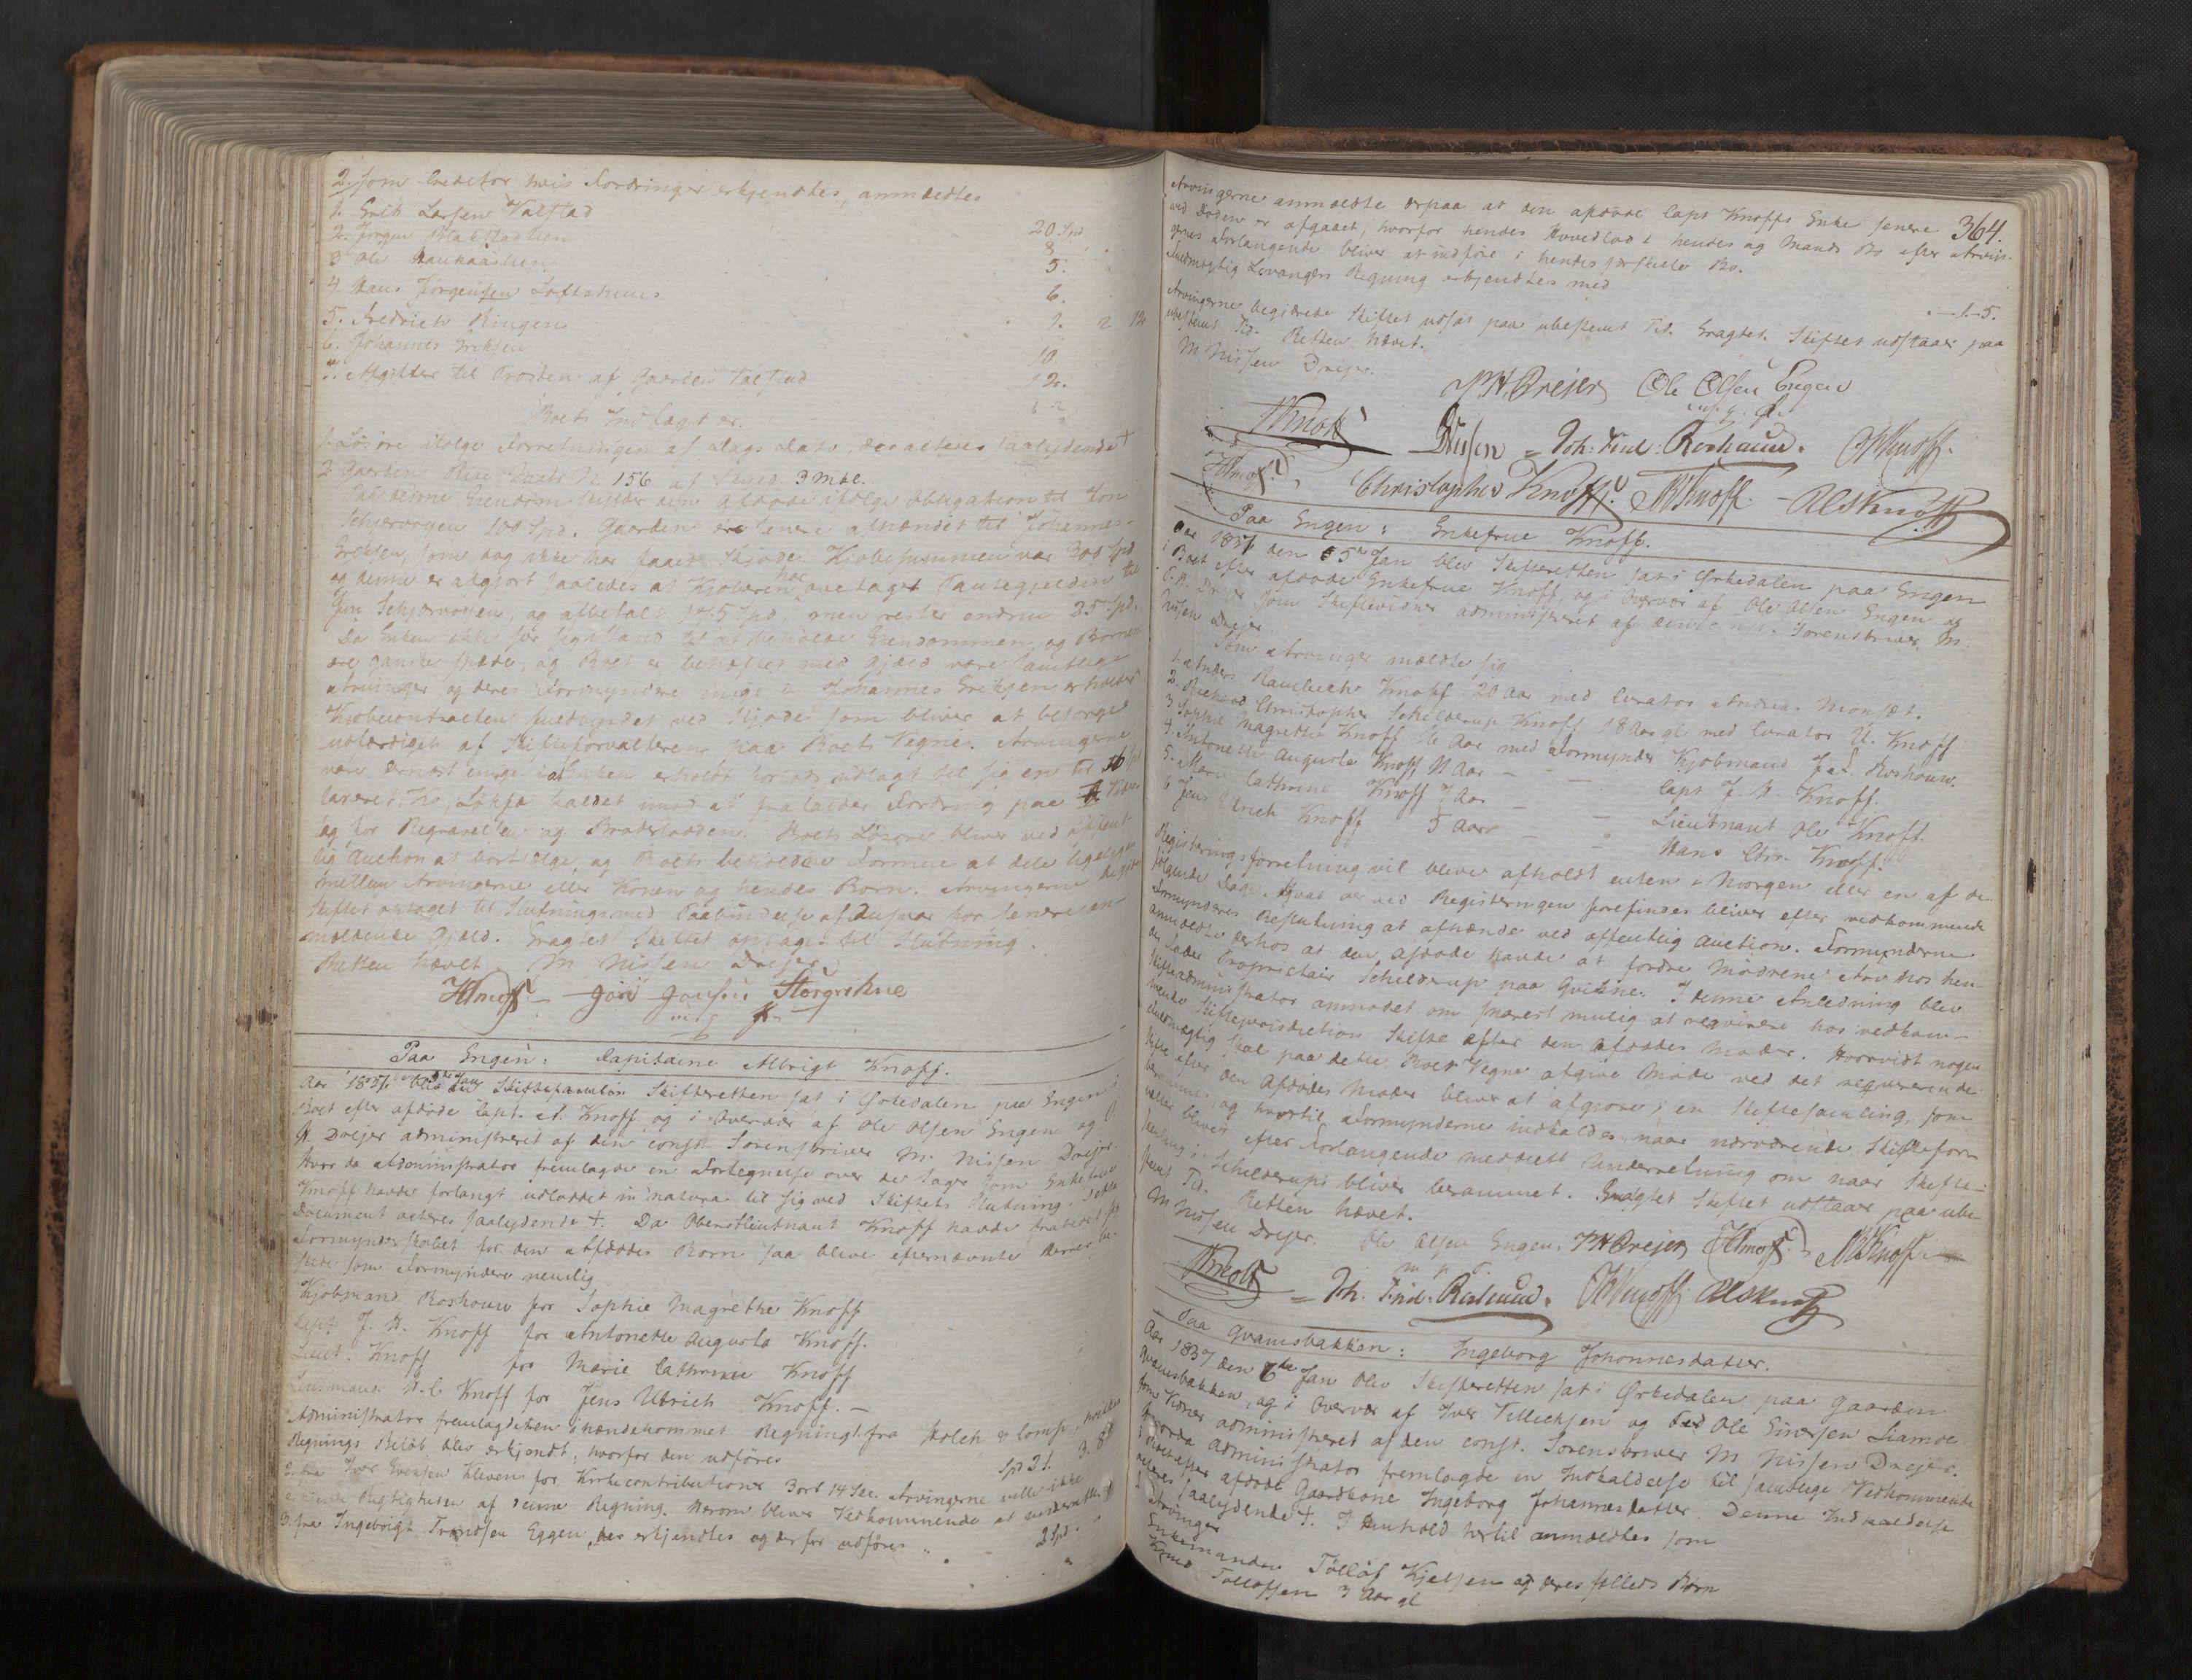 2. Som Creditor hvis Fordringer erkjendtes, anmeldtes
1. Erik Larsen Valstad 20 Spd
2. Jörgen 8
3 Ole 5.
4 Hans Jörgensen 6.
5. Fredrich Ringen 2
6. Johannes Eriksen 10.
7. Afgifter til Præsten af Gaarden Valstad 12.
Boets Indtægt er.
1. Lösöre ifølge Forretningen af Dags Dato, der acteres saalydende +
2 Gaarden No. 156 af Skyld 3 Mkl.
Paa denne Eiendom skylder den afdøde ifølge Obligation til Jon
100 Spd. Gaarden er senere afhændet til Johannes
Eriksen, som dog ikke har faaet Skjøde. Kjøbesummen var 300 Spd
og denne er afgjort saaledes at Kjøberen har overtaget Pantegjelden til
Jon og afbetalt 175 Spd men rester endnu 25 Spd.
Da Enken ikke seer sig istand til at beholde Eiendommen, og Børnene
ere ganske spæde, og Boet er behæftet med Gjæld vare samtlige
Arvinger og deres Formyndere enige i Johannes Eriksen erholder
Kjøbecontracten fuldbyrdet ved Skjøde som bliver at besørge
udfærdiget af Skifteforvalteren paa Boets Vegne. Arvingerne
vare dernæst enige i at Enken erholdt forlods udlagt til sig en til 10
taxeret Ko kaldet imod at frafalde Fordring paa
og for Begravelse og Boets Lösöre bliver ved offent-
lig Auction at bortsælge, og Boets beholdne Formue at dele ligeligen
mellem Arvingerne eller Konen og hendes Børn. Arvingerne
Skiftet optaget til Slutning med Paabindelse af Ansvar for senere an-
meldende Gjæld. Eragtet Skiftet optages til Slutning.
Retten hævet. M Nissen Dreyer
HKnoff Jon Jonsen Storgrekne
Paa Engen: Capitaine Albrigt Knoff.
Aar 1837 blev Skifteretten sat i Örkedalen paa Engen i
Boet efter afdøde Capt. A. Knoff og i Overvær af Ole Olsen Engen og P.
H. Drejer administreret af den const. Sorenskriver M. Nissen Dreyer.
Hvor da Administrator fremlagde en Fortegnelse over de Sager som Enkefrue
Knoff havde forlangt udloddet in natura til sig ved Skiftets Slutning. Dette
Document acteres saalydende +. Da Oberstlieutnant Knoff havde frabedet sig
Formynderskabet for den Afdødes Børn saa bleve efternævnte derner be-
skede som Formyndere nemlig
Kjøbmand Roshauw for Sophie Magrethe Knoff
Capt. J. H. Knoff for Antonette Augusta Knoff.
Lieut. Knoff for Marie Cathrine Knoff
Lensmand H. C Knoff for Jens Ulrich Knoff. —
Administrator fremlagde en ihændekommet Regning 1. fra Holck & Comp, hvilken
Regnings Beløb blev erkjendt, hvorfor den udföres Spd 21. 3. 8
2. fra Iver Evensen Kleven for Kirkecontributioner 3 ort 14 Sk. Arvingerne ville ikke
erkjende Rigtigheden af denne Regning. Herom bliver Vedkommende at underrette
3. fra Ingebrigt Trondsen Eggen, der erkjendtes og derfor udföres 2 Spd.
364.
Arvingerne anmeldte derpaa at den afdøde Capt Knoffs Enke senere
ved Døden er afgaaet, hvorfor hendes Hovedlod i hendes og Mands Bo efter Arvin-
gernes Forlangende bliver at indföre i hendes særskilte Bo.
Fuldmægtig Levangers Regning erkjendtes med — 1 — 5.
Arvingerne begjærede Skiftet udsat paa ubestemt Tid. Eragtet. Skiftet udstaaer paa
ubestemt Tid. Retten hævet.
M Nissen Dreyer. PH. Dreier Ole Olsen Engen
Knoff Joh. Find. Roshauw. Knoff.
HKnoff Christopher Knoff. Knoff. — Knoff
Paa Engen: Enkefrue Knoff.
Aar 1837 den 5te Jan blev Skifteretten sat i Örkedalen paa Engen
i Boet efter afdøde Enkefrue Knoff, og i Overvær af Ole Olsen Engen og
P. H. Dreyer som Skiftevidner administreret af den const. Sorenskriver M.
Nissen Dreyer.
Som Arvinger meldte sig
1. Anders Rambech Knoff 20 Aar med Curator Andreas Monsæt.
2. Richard Christopher Schelderup Knoff 18 Aar gl. med Curator U. Knoff
3. Sophie Magrethe Knoff 16 Aar med Formynder Kjøbmand J. F. Roshauw.
4. Antonette Augusta Knoff 11 Aar — — Capt J. H. Knoff.
5. Marie Cathrine Knoff 7 Aar — — Lieutnant Ole Knoff.
6 Jens Ulrich Knoff 5 Aar — — Hans Chr. Knoff.
Registeringsforretning vil blive afholdt enten i Morgen eller en af de
følgende Dage. Hvad der ved Registeringen forefindes bliver efter vedkommende
Formynderes Beslutning at afhænde ved offentlig Auction. Formynderne
anmeldte derhos at den afdøde havde at fordre Mødrene Arv hos hen-
des Fader Proprietair Schelderup paa Qvikne. I denne Anledning blev
Skifteadministrator anmodet om snarest mulig at reqvirere hos vedkom-
mende Skiftejurisdiction Skifte efter den Afdødes Moder. Hvorvidt nogen
Fuldmægtig skal paa dette Boes Vegne afgive Møde ved det reqvirerende
Skifte efter den Afdødes Moder bliver at afgjøre i en Skiftesamling, som
berammes, og hvortil Formynderne indkaldes, naar nærværende Skiftefor-
valter bliver efter Forlangende meddeelt Underretning om naar Skifte-
samling i Schelderups bliver berammet. Eragtet Skiftet udstaaer paa ube-
stemt Tid. Retten hævet.
M Nissen Dreyer. Ole Olsen Engen, PH Dreier HKnoff Knoff
m p P.
Knoff — Joh. Find. Roshauw. Knoff Knoff
Paa Qvamsbakken: Ingeborg Johannesdatter.
Aar 1837 den 6te Jan blev Skifteretten sat i Örkedalen paa Gaarden
Qvamsbakken, og i Overvær af Iver Tellefsen og Ole Einersen Liamoe
som Vidner administreret af den const. Sorenskriver M Nissen Dreyer.
Hvorda Administrator fremlagde en Indkaldelse til samtlige Vedkommende
i Boet efter afdøde Gaardkone Ingeborg Johannesdatter. Denne Indkaldelse
acteres saalydende +. I Henhold hertil anmeldtes som
Arvinger
Enkemanden Tøllöf Kjelsen og deres fælleds Børn
Knud Tollofsen 3 Aar gl